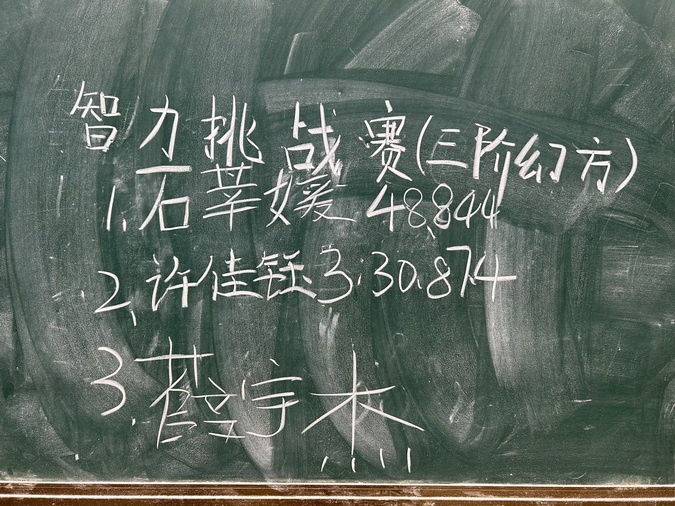 智力挑战赛(三阶幻方)
1.石莘媛 48.844
2.许佳钰 3:30.874
3.蔡宇杰